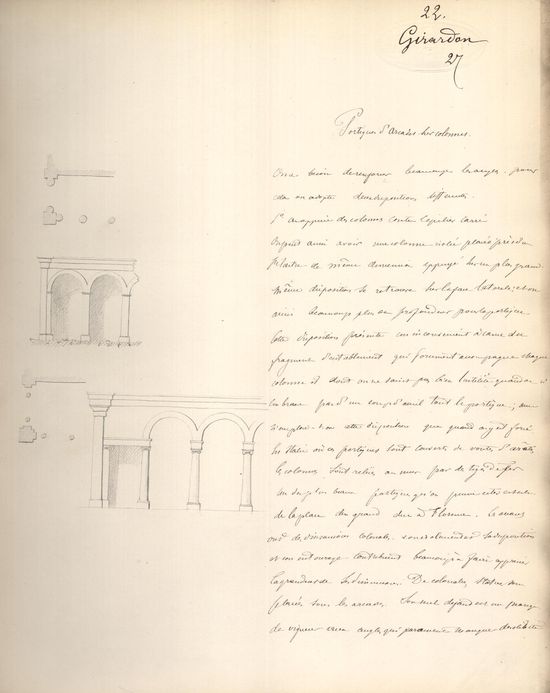 22.
Girardon
27
Portiques d'arcades sur colonnes.
On a besoin de renforcer beaucoup les angles. pour
cela on adopte deux dispositions différentes.
1° on appuie des colonnes contre le pilier carré
On peut aussi avoir une colonne isolée placée près d'un
pilastre de même dimension appuyé sur un plus grand
même disposition se retrouve sur la face latérale; et on
ainsi beaucoup plus de profondeur pour le portique.
Cette disposition présente un inconvénient à cause du
fragment d'entablement qui forment chaque
colonne et dont on ne saisit pas bien l'utilité quand on
embrasse pas d'un coup d'œil tout le portique;
n'emploie-t-on cette disposition que quand on y est forcé
En Italie où ces portiques sont couverts de voûtes d'arêtes
les colonnes sont reliées au mur par des tiges de fer
Un des plus beaux portiques qu'on puisse citer est celui
de la place du grand duc à Florence. Les arcades
ont des dimensions colossales. sa disposition
et son entourage contribuent beaucoup à faire apprécier
la grandeur de ses dimensions. De colossales statues sont
placées sous les arcades. Son seul défaut est un manque
de vigueur aux angles qui paraissent manquer de solidité